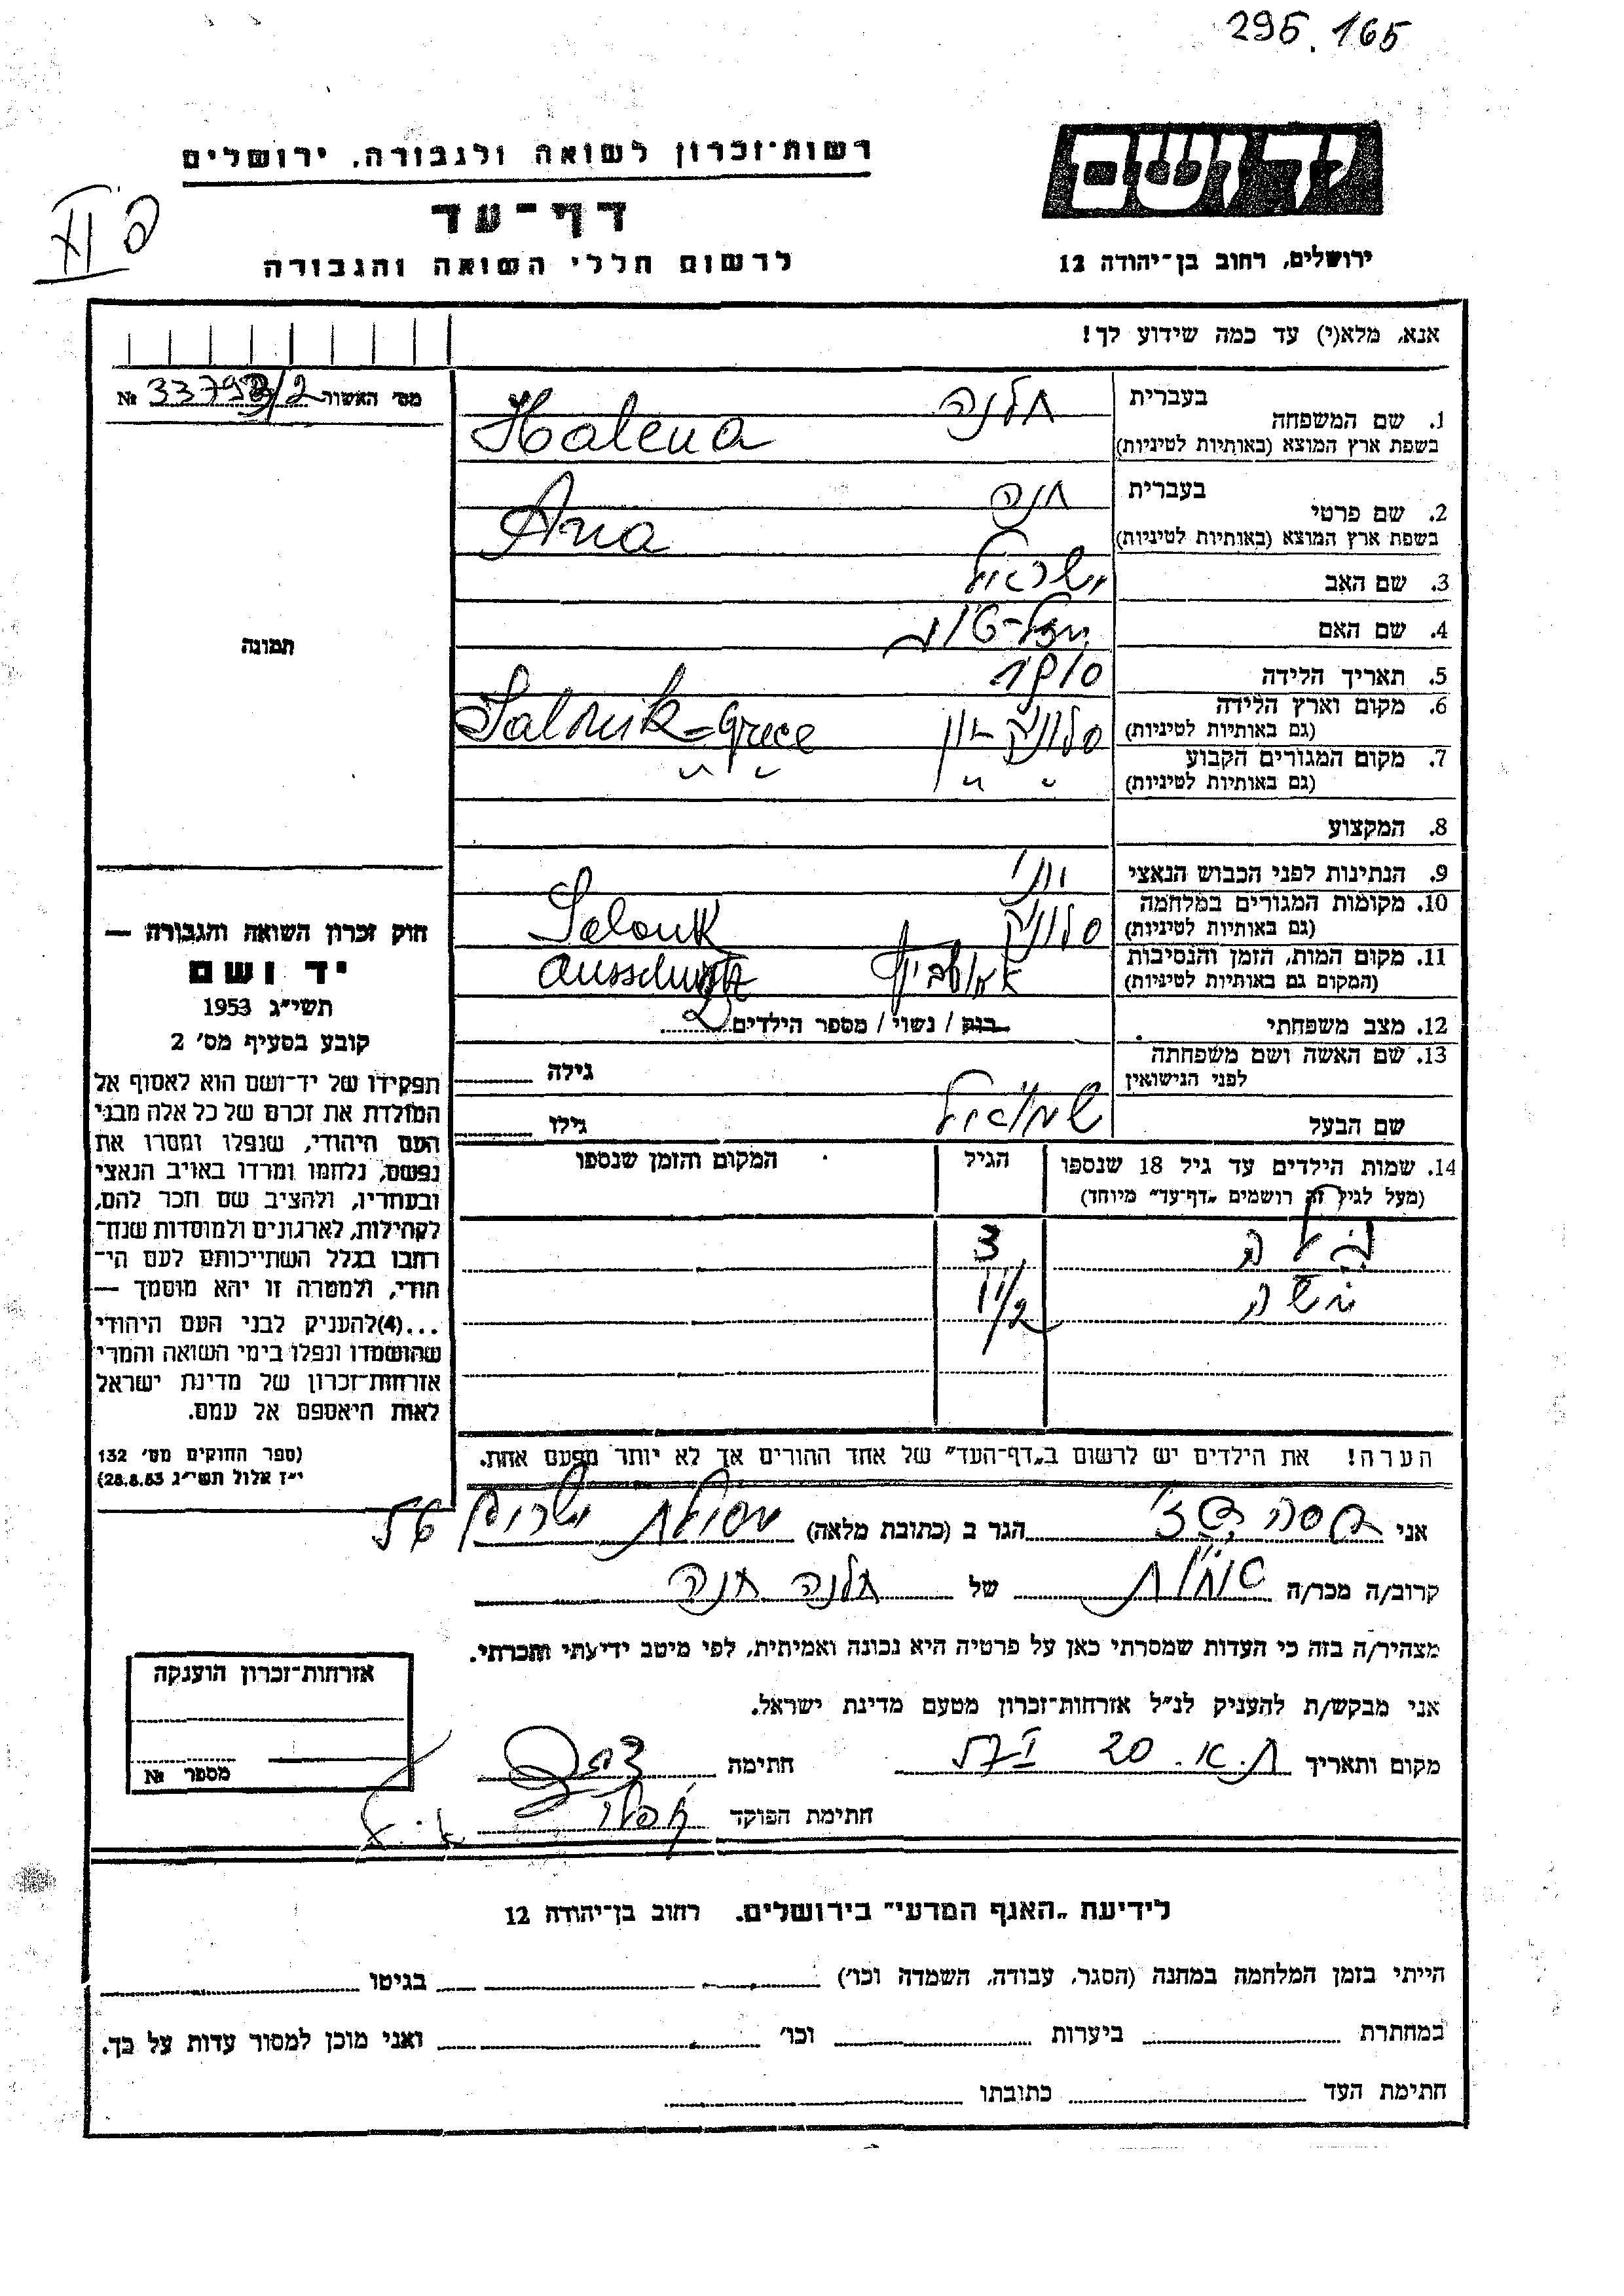 295.165
יד ושם
רשות-זכרון לשואה ולגבורה, ירושלים
דף-עד
לרשום חללי השואה והגבורה
ירושלים, רחוב בן-יהודה 12
אנא, מלא(י) עד כמה שידוע לך!
מס' האשור № 33793/2
בעברית חלנה
1. שם המשפחה
בשפת ארץ המוצא (באותיות לטיניות) Halena
בעברית חנה
2. שם פרטי
בשפת ארץ המוצא (באותיות לטיניות) Ana
3. שם האב ישראל
4. שם האם מזל-טוב
5. תאריך הלידה 1910
6. מקום וארץ הלידה
(גם באותיות לטיניות) סלוניק יון Salonik=Grece
7. מקום המגורים הקבוע
(גם באותיות לטיניות) " " " "
8. המקצוע
9. הנתינות לפני הכבוש הנאצי יוני
10. מקומות המגורים במלחמה
(גם באותיות לטיניות) סלוניק Salonik
11. מקום המות, הזמן והנסיבות
(המקום גם באותיות לטיניות) אושביץ Ausschwitz
12. מצב משפחתי רווק / נשוי / מספר הילדים 2
13. שם האשה ושם משפחתה
לפני הנישואין גילה
שם הבעל שמואל גילו
14. שמות הילדים עד גיל 18 שנספו
(מעל לגיל זה רושמים „דף-עד" מיוחד)
הגיל
המקום והזמן שנספו
3
משה 1 1/2
תמונה
חוק זכרון השואה והגבורה —
יד ושם
תשי"ג 1953
קובע בסעיף מס' 2
תפקידו של יד-ושם הוא לאסוף אל
המולדת את זכרם של כל אלה מבני
העם היהודי, שנפלו ומסרו את
נפשם, נלחמו ומרדו באויב הנאצי
ובעוזריו, ולהציב שם וזכר להם,
לקהילות, לארגונים ולמוסדות שנח-
רבו בגלל השתייכותם לעם הי-
הודי, ולמטרה זו יהא מוסמך —
...(4)להעניק לבני העם היהודי
שהושמדו ונפלו בימי השואה והמרי
אזרחות-זכרון של מדינת ישראל
לאות היאספם אל עמם.
(ספר החוקים מס' 132
י"ז אלול תשי"ג 28.8.53)
הערה! את הילדים יש לרשום ב„דף-העד" של אחד ההורים אך לא יותר מפעם אחת.
אני הגר ב (כתובת מלאה) מסילת ישרים
קרוב/ה מכר/ה של חלנה חנה
מצהיר/ה בזה כי העדות שמסרתי כאן על פרטיה היא נכונה ואמיתית, לפי מיטב ידיעתי והכרתי.
אני מבקש/ת להעניק לנ"ל אזרחות-זכרון מטעם מדינת ישראל.
מקום ותאריך ת.א. 20 חתימה
חתימת הפוקד
אזרחות-זכרון הוענקה
מספר №
לידיעת „האגף המדעי" בירושלים. רחוב בן-יהודה 12
הייתי בזמן המלחמה במחנה (הסגר, עבודה, השמדה וכו') בגיטו
במחתרת ביערות וכו' ואני מוכן למסור עדות על כך.
חתימת העד כתובתו